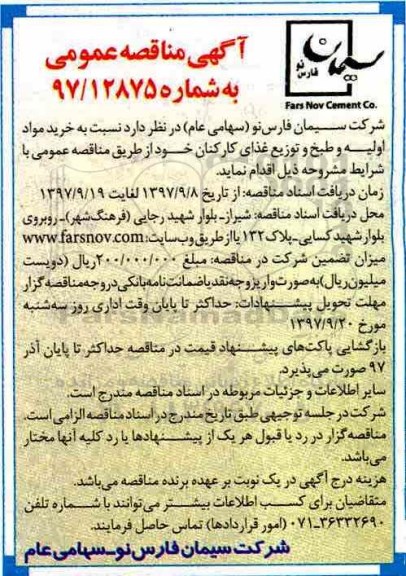 آگهی مناقصه عمومی
به شماره ۹۷/۱۲۸۷۵
سیمان
فارس نو
Fars Nov Cement Co.
شرکت سیمان فارس نو (سهامی عام) در نظر دارد نسبت به خرید مواد
اولیه و طبخ و توزیع غذای کارکنان خود از طریق مناقصه عمومی با
شرایط مشروحه ذیل اقدام نماید.
زمان دریافت اسناد مناقصه: از تاریخ ۱۳۹۷/۹/۸ لغایت ۱۳۹۷/۹/۱۹
محل دریافت اسناد مناقصه: شیراز- بلوار شهید رجایی (فرهنگ شهر)- روبروی
بلوار شهید کسایی- پلاک ۱۳۲ یا از طریق وب سایت: www.farsnov.com
میزان تضمین شرکت در مناقصه: مبلغ ۲۰۰/۰۰۰/۰۰۰ ریال (دویست
میلیون ریال) به صورت واریز وجه نقد یا ضمانت نامه بانکی در وجه مناقصه گزار
مهلت تحویل پیشنهادات: حداکثر تا پایان وقت اداری روز سه شنبه
مورخ ۱۳۹۷/۹/۲۰
بازگشایی پاکت های پیشنهاد قیمت در مناقصه حداکثر تا پایان آذر
۹۷ صورت می پذیرد.
سایر اطلاعات و جزئیات مربوطه در اسناد مناقصه مندرج است.
شرکت در جلسه توجیهی طبق تاریخ مندرج در اسناد مناقصه الزامی است.
مناقصه گزار در رد یا قبول هر یک از پیشنهادها یا رد کلیه آنها مختار
می باشد.
هزینه درج آگهی در یک نوبت بر عهده برنده مناقصه می باشد.
متقاضیان برای کسب اطلاعات بیشتر می توانند با شماره تلفن
۰۷۱-۳۶۳۳۲۶۹۰ (امور قراردادها) تماس حاصل فرمایند.
شرکت سیمان فارس نو- سهامی عام